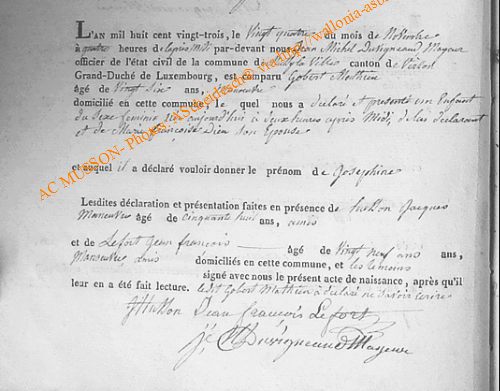 L'AN mil huit cent vingt-trois, le Vingt quatre du mois de Novembre
à quatre heures de l'après Midi par-devant nous Jean Michel Duvigneaud Mayeur
officier de l'état civil de la commune de Ville canton de Virton
Grand-Duché de Luxembourg, est comparu Gobert Mathieu
âgé de Vingt Six ans, Manœuvre
domicilié en cette commune, le quel nous a déclaré et présenté un Enfant
du Sexe feminin né aujourd'hui à deux heures après Midi, de lui déclarant
et de Marie Françoise Dien Son Epouse
et auquel il a déclaré vouloir donner le prénom de Josephine
Lesdites déclaration et présentation faites en présence de husson Jacques
Maneuvre âgé de cinquante huit ans, amis
et de Lefort Jean françois âgé de Vingt neuf ans ans,
Maneuvre, amis domiciliés en cette commune, et les temoins
signé avec nous le présent acte de naissance, après qu'il
leur en a été fait lecture. ledit Gobert Mathieu a déclaré ne savoir écrire
J husson Jean François Lefort
Duvigneaud Mayeur
AC MUSSON- Photos via http://wallonia-as